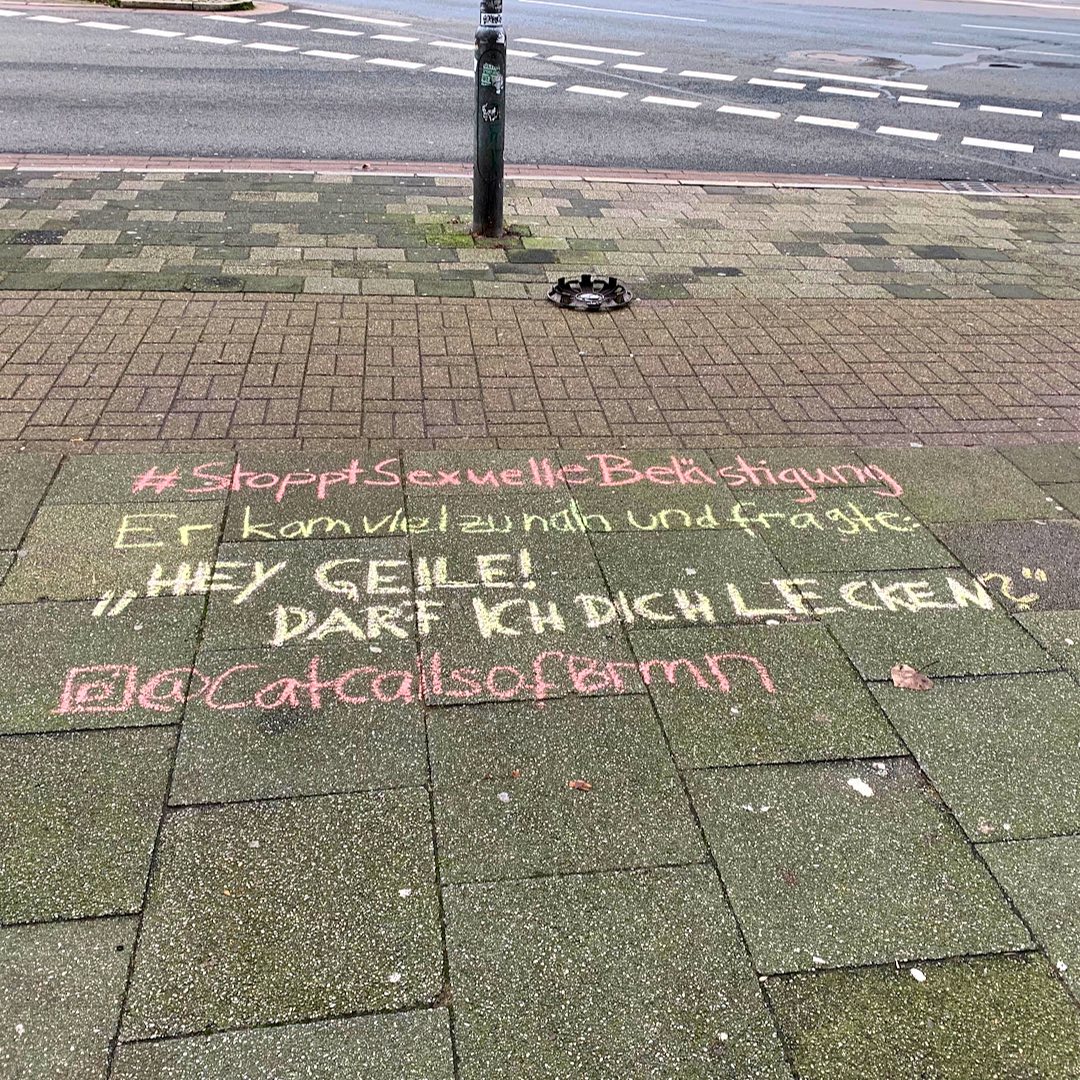 #StopptSexuelleBelästigung
Er kam viel zu nah und fragte:
„HEY GEILE!
DARF ICH DICH LECKEN?"
@CatcallsofBrmn